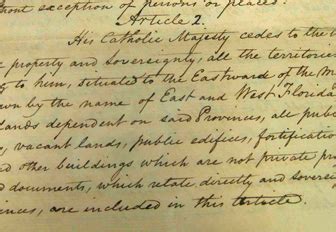 hout exception of persons or places.
Article 2.
His Catholic Majesty cedes to the
property and sovereignty, all the territories
to him, situated to the Eastward of the M
own by the name of East and West Florida
lands dependent on said Provinces, all pub
s, vacant lands, public edifices, fortificatio
nd other buildings which are not private pr
d documents, which relate directly and soverei
inces, are included in this Article.